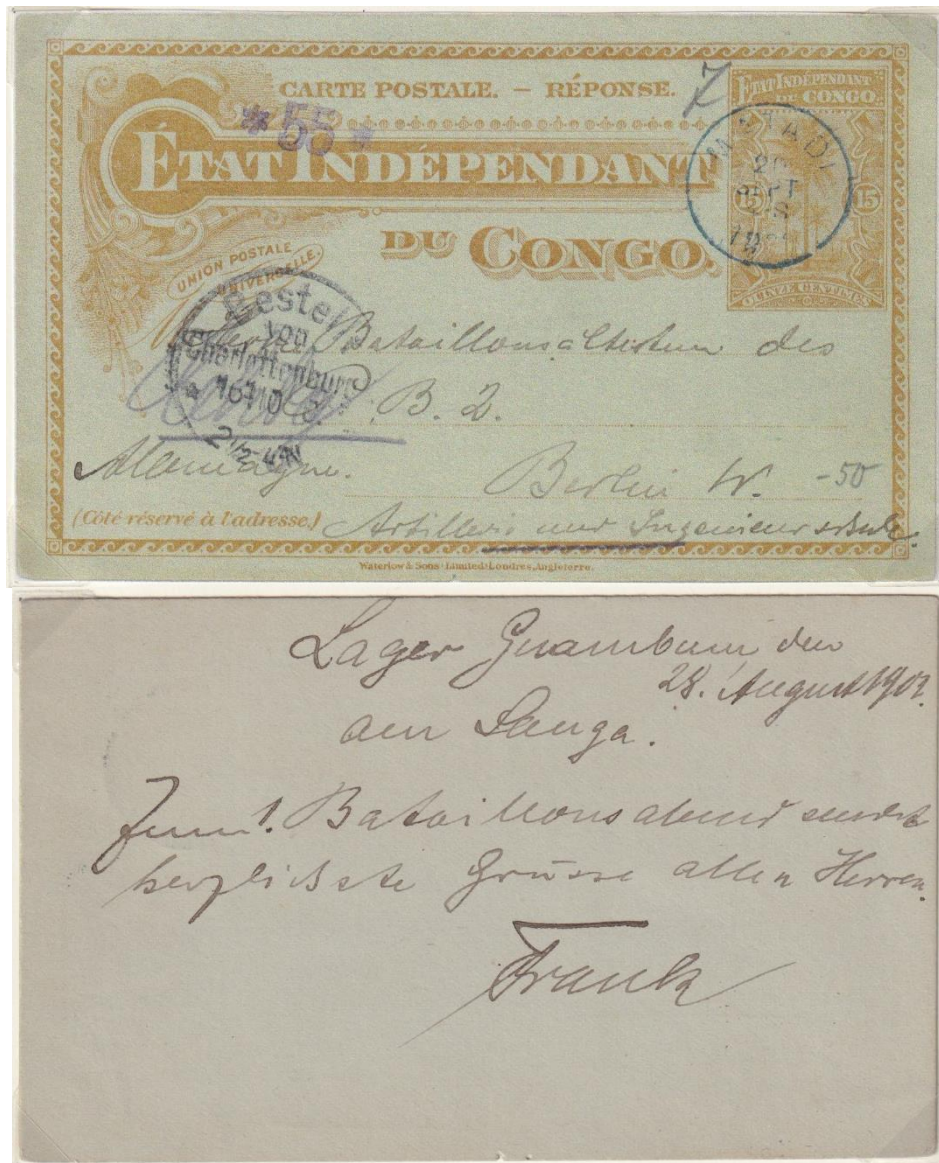 CARTE POSTALE. — RÉPONSE.
ETAT INDÉPENDANT
DU CONGO.
* 55 *
ÉTAT INDÉPENDANT
DU CONGO.
MATADI
SEPT
15 15
QUINZE CENTIMES
UNION POSTALE
UNIVERSELLE.
Bestellt
von
Charlottenburg
16/10
2½-4N
Bataillonsältesten des
B. 2.
Allemagne.
Berlin W. -50
(Côté réservé à l'adresse.)
Artillerie und Ingenieurschule.
Waterlow & Sons Limited, Londres, Angleterre.
Lager den
28. August 190
am Sanga.
Zum 1. Bataillonsabend sendet
herzlichste Grüsse allen Herren.
Frank